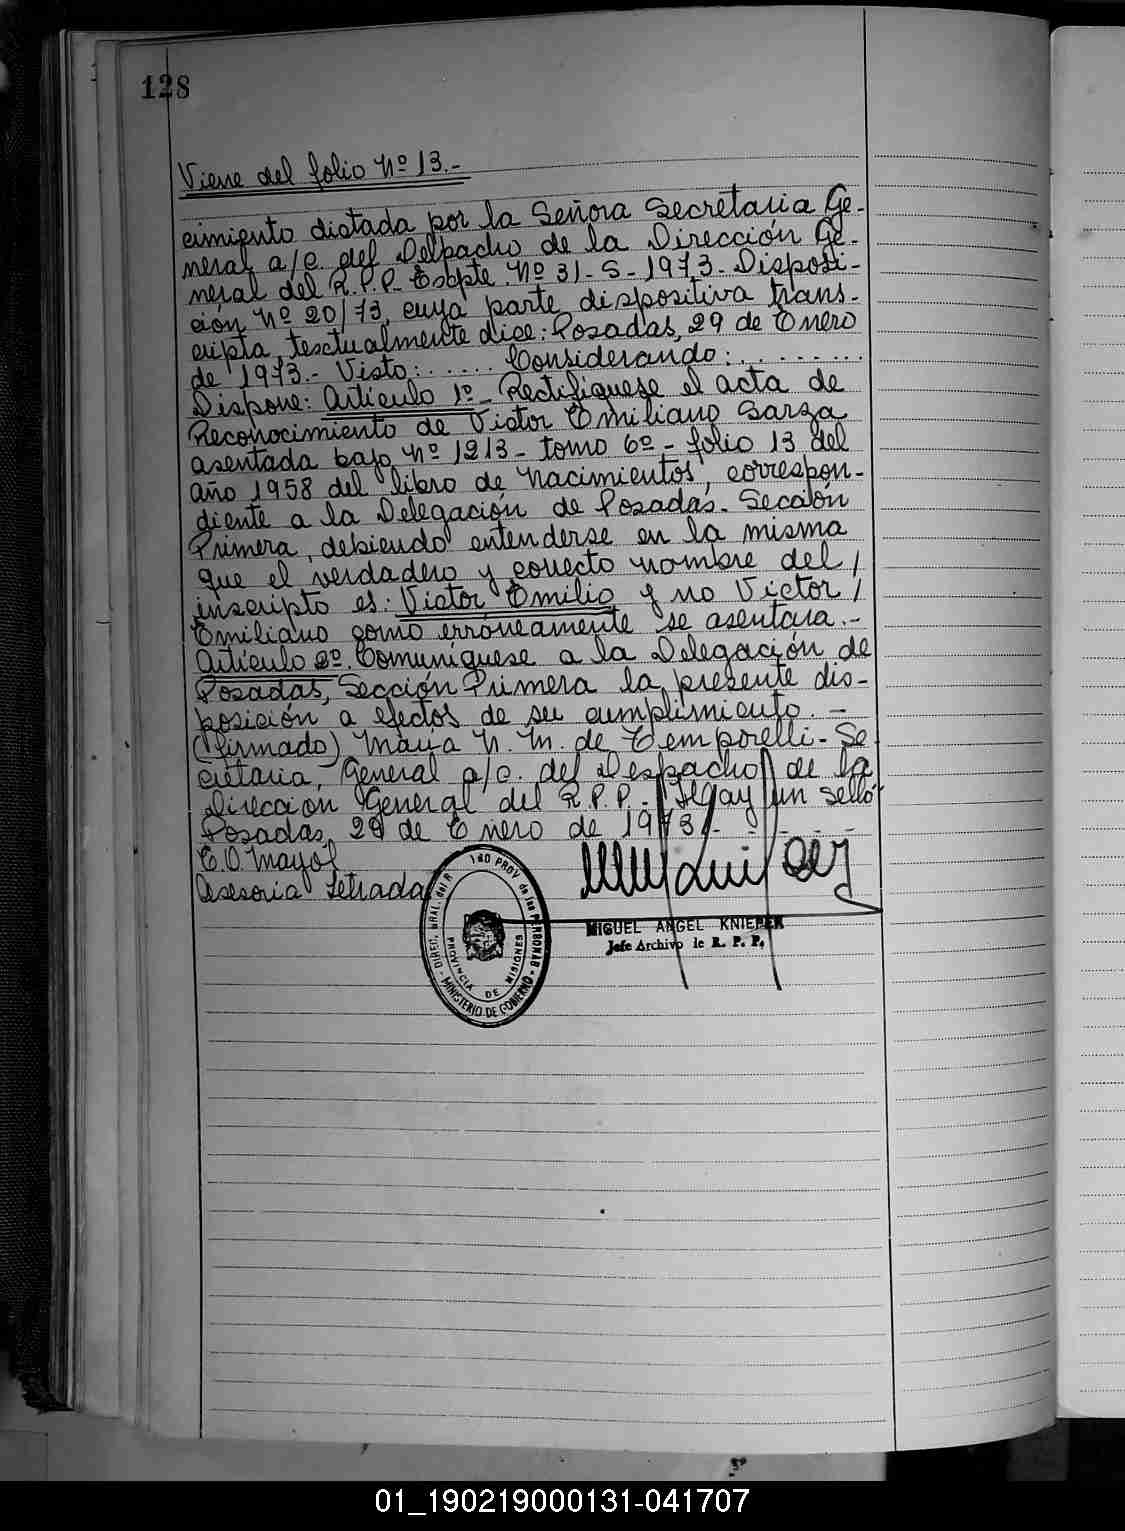 128
Viene del folio Nº 13.-
cimiento dictada por la Señora Secretaria Ge-
neral a/c del Despacho de la Dirección Ge-
neral del R.P.P. Escpte. Nº 31-S-1973-Disposi-
ción Nº 20/73, cuya parte dispositiva trans-
cripta, textualmente dice: Posadas, 29 de Enero
de 1973.- Visto: ...... Considerando: .........
Dispone: Artículo 1º- Rectifíquese el acta de
Reconocimiento de Victor Emiliano Sarza
asentada bajo Nº 1213- tomo 6º- folio 13 del
año 1958 del libro de Nacimientos, correspon-
diente a la Delegación de Posadas- Sección
Primera, debiendo entenderse en la misma
que el verdadero y correcto nombre del/
inscripto es: Victor Emilio y no Victor/
Emiliano como erróneamente se asentara.-
Artículo 2º. Comuníquese a la Delegación de
Posadas, Sección Primera la presente dis-
posición a efectos de su cumplimiento. -
(firmado) María N. M. de Temporelli- Se
cretaria General a/c. del Despacho de la
Dirección General del R.P.P.- Hay un sello
Posadas, 29 de Enero de 1973.- - - - -
E.O. Mayol
Asesoria Letrada
DIREC. GRAL. del R PROV de las PERSONAS
PROVINCIA DE MISIONES
MINISTERIO DE GOBIERNO
MIGUEL ANGEL KNIEPER
Jefe Archivo de R. P. P.
01_190219000131-041707